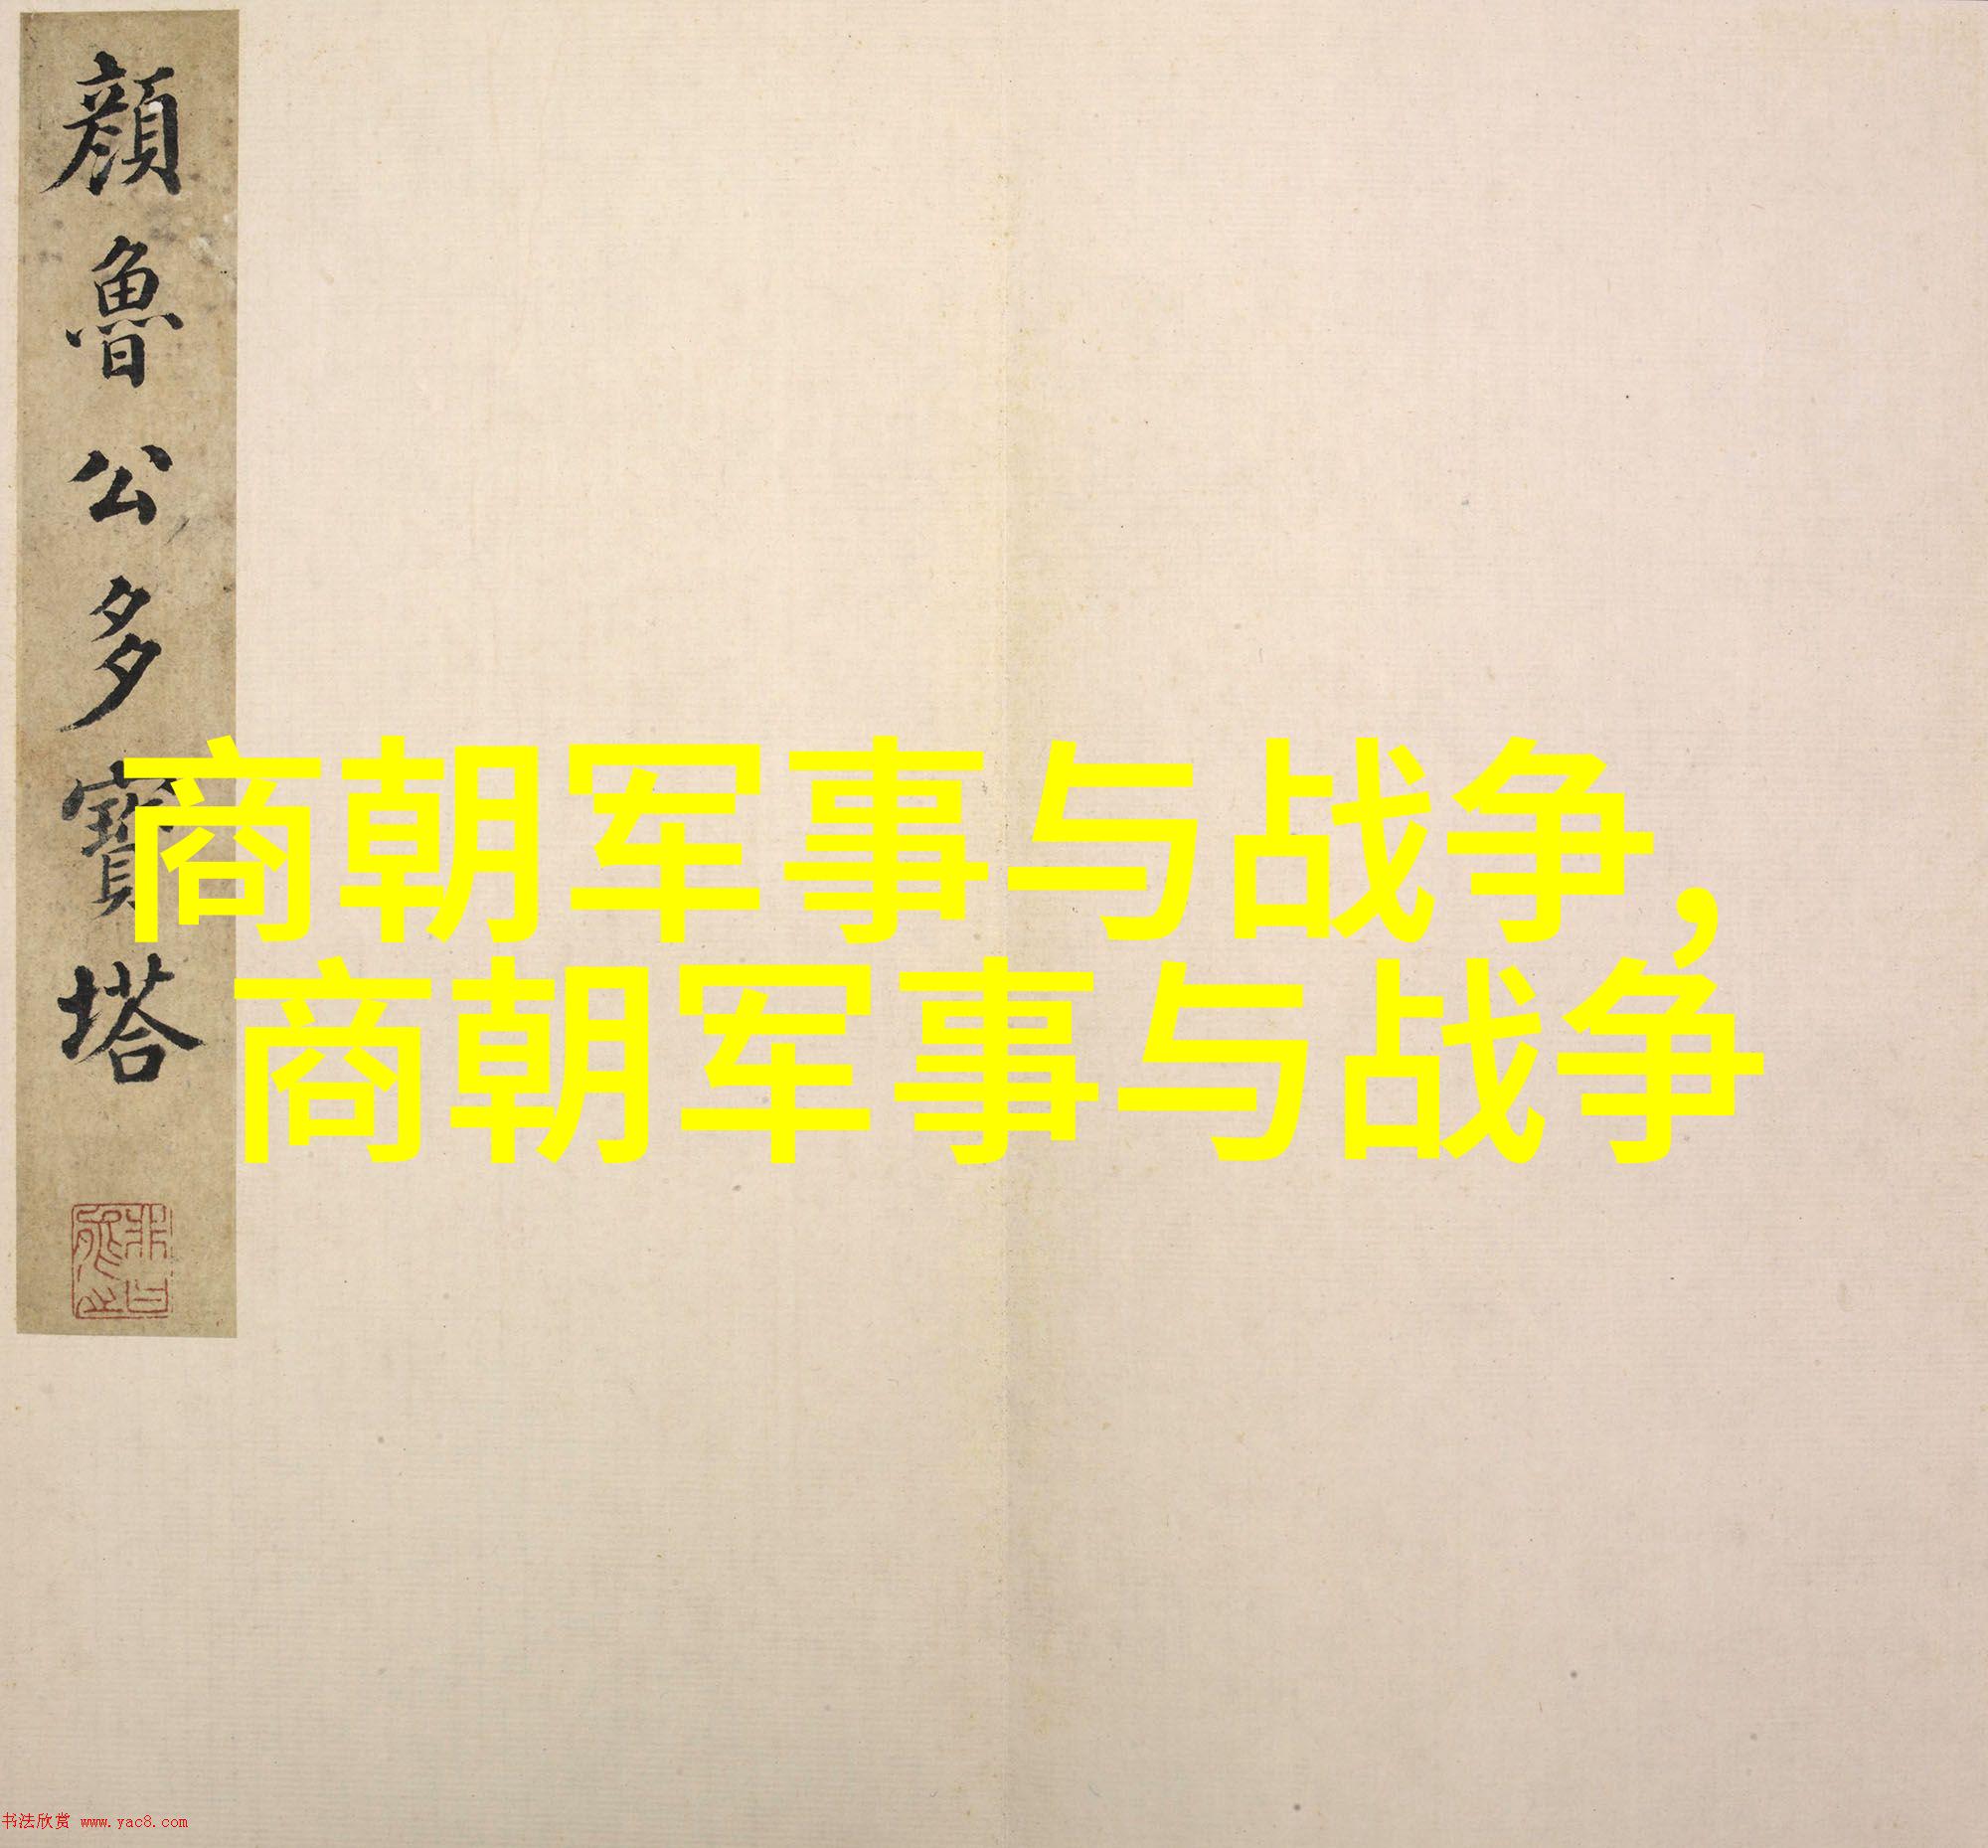 顔魯公多寶塔
商朝军事与战争,
商朝军事与战争
书法欣赏 www.yac8.com